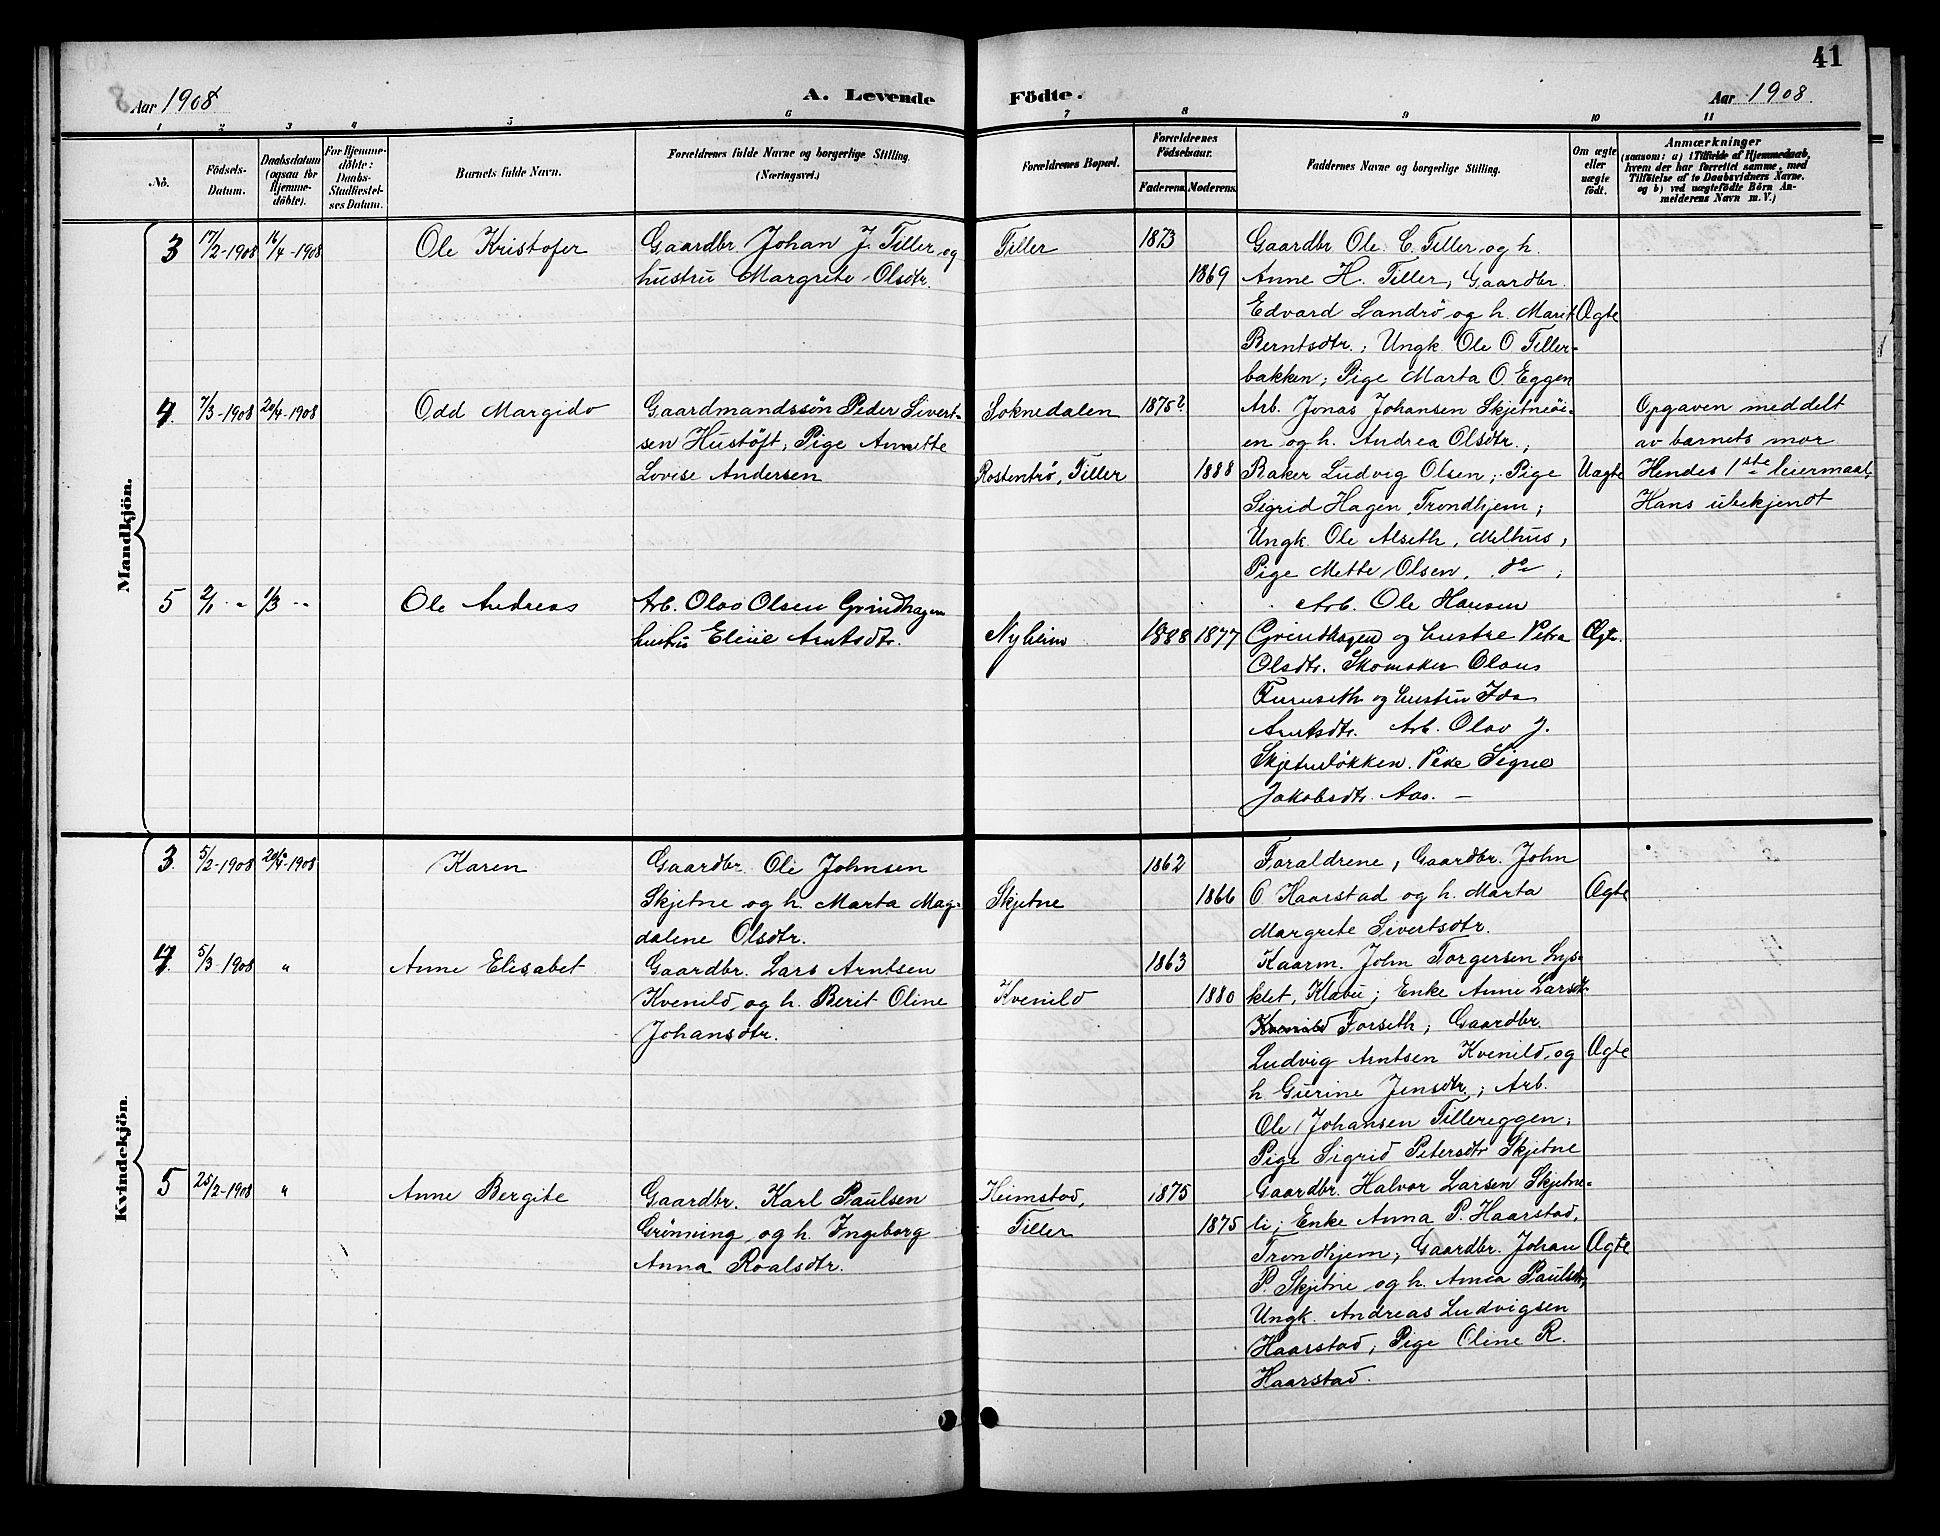 41
Aar 1908
A. Levende
Födte.
Aar 1908.
1
2
3
4
5
6
7
8
9
10
11
No.
Födsels-
Datum.
Daabsdatum
(ogsaa for
Hjemme-
döbte).
For Hjemme-
döbte:
Daabs-
Stadfæstel-
ses Datum.
Barnets fulde Navn.
Forældrenes fulde Navne og borgerlige Stilling.
(Næringsvei.)
Forældrenes Bopæl.
Forældrenes
Födselsaar.
Faderens.
Moderens.
Faddernes Navne og borgerlige Stilling.
Om ægte
eller
uægte
født.
Anmærkninger
(saasom: a) i Tilfælde af Hjemmedaab,
hvem der har forrettet samme, med
Tilföielse af to Daabsvidners Navne.
og b) ved uægtefödte Börn An-
melderens Navn m. V.)
Mandkjön.
3
17/2-1908
16/4-1908
Ole Kristofer
Gaardbr. Johan J. Tiller og
hustru Margrete Olsdtr.
Tiller
1873
1869
Gaardbr. Ole C. Tiller og h.
Anne H. Tiller; Gaardbr.
Edvard Landrö og h. Marit
Berntsdtr.; Ungk. Ole O Tiller-
bakken; Pige Marta O. Eggen
Ægte
4.
7/3-1908
20/4-1908
Odd Margido
Gaardmandssøn Peder Sivert-
sen Hustöft; Pige Annette
Lovise Andersen
Soknedalen
Rostentrø, Tiller
1875?
1888
Arb. Jonas Johansen Skjetneöi-
en og h. Andrea Olsdtr.;
Baker Ludvig Olsen; Pige
Sigrid Hagen, Trondhjem;
Ungk. Ole Alseth, Melhus;
Pige Mette Olsen, do;
Uægte
Opgaven meddelt
av barnets mor
Hendes 1ste leiermaal,
Hans ubekjendt
5
2/1 "
1/3 "
Ole Andreas
Arb. Olav Olsen Grindhagen
hustru Eline Arntsdtr.
Nyheim
1888
1877
Arb. Ole Hansen
Grindhagen og hustru Petra
Olsdtr. Skomaker Olaus
Furuseth og hustru Ida
Arntsdtr. Arb. Olav J.
Skjetneløkken. Pike Signe
Jakobsdtr. Aas. —
Ægte.
Kvindekjön.
3.
5/2-1908
20/4-1908
Karen
Gaardbr. Ole Johnsen
Skjetne og h. Marta Mag-
dalene Olsdtr.
Skjetne
1862
1866
Foraldrene, Gaardbr. John
O Haarstad og h. Marta
Margrete Sivertsdtr.
Ægte
4.
5/3-1908
"
Anne Elisabet
Gaardbr. Lars Arntsen
Kvenild og h. Berit Oline
Johansdtr.
Kvenild
1863
1880
Kaarm. John Torgersen Lys-
klet, Klæbu; Enke Anne Larsdtr.
Kvenild Forseth; Gaardbr.
Ludvig Arntsen Kvenild og
h. Gurine Jensdtr.; Arb.
Ole Johansen Tillereggen;
Pige Sigrid Petersdtr Skjetne
Ægte
5
25/2-1908
"
Anne Bergite
Gaardbr. Karl Paulsen
Grønning og h. Ingeborg
Anna Roalsdtr.
Heimstad,
Tiller
1875
1875
Gaardbr. Halvor Larsen Skjetne-
li; Enke Anna P. Haarstad,
Trondhjem; Gaardbr. Johan
P. Skjetne og h. Anna Paulsdtr,
Ungk. Andreas Ludvigsen
Haarstad; Pige Oline R.
Haarstad.
Ægte